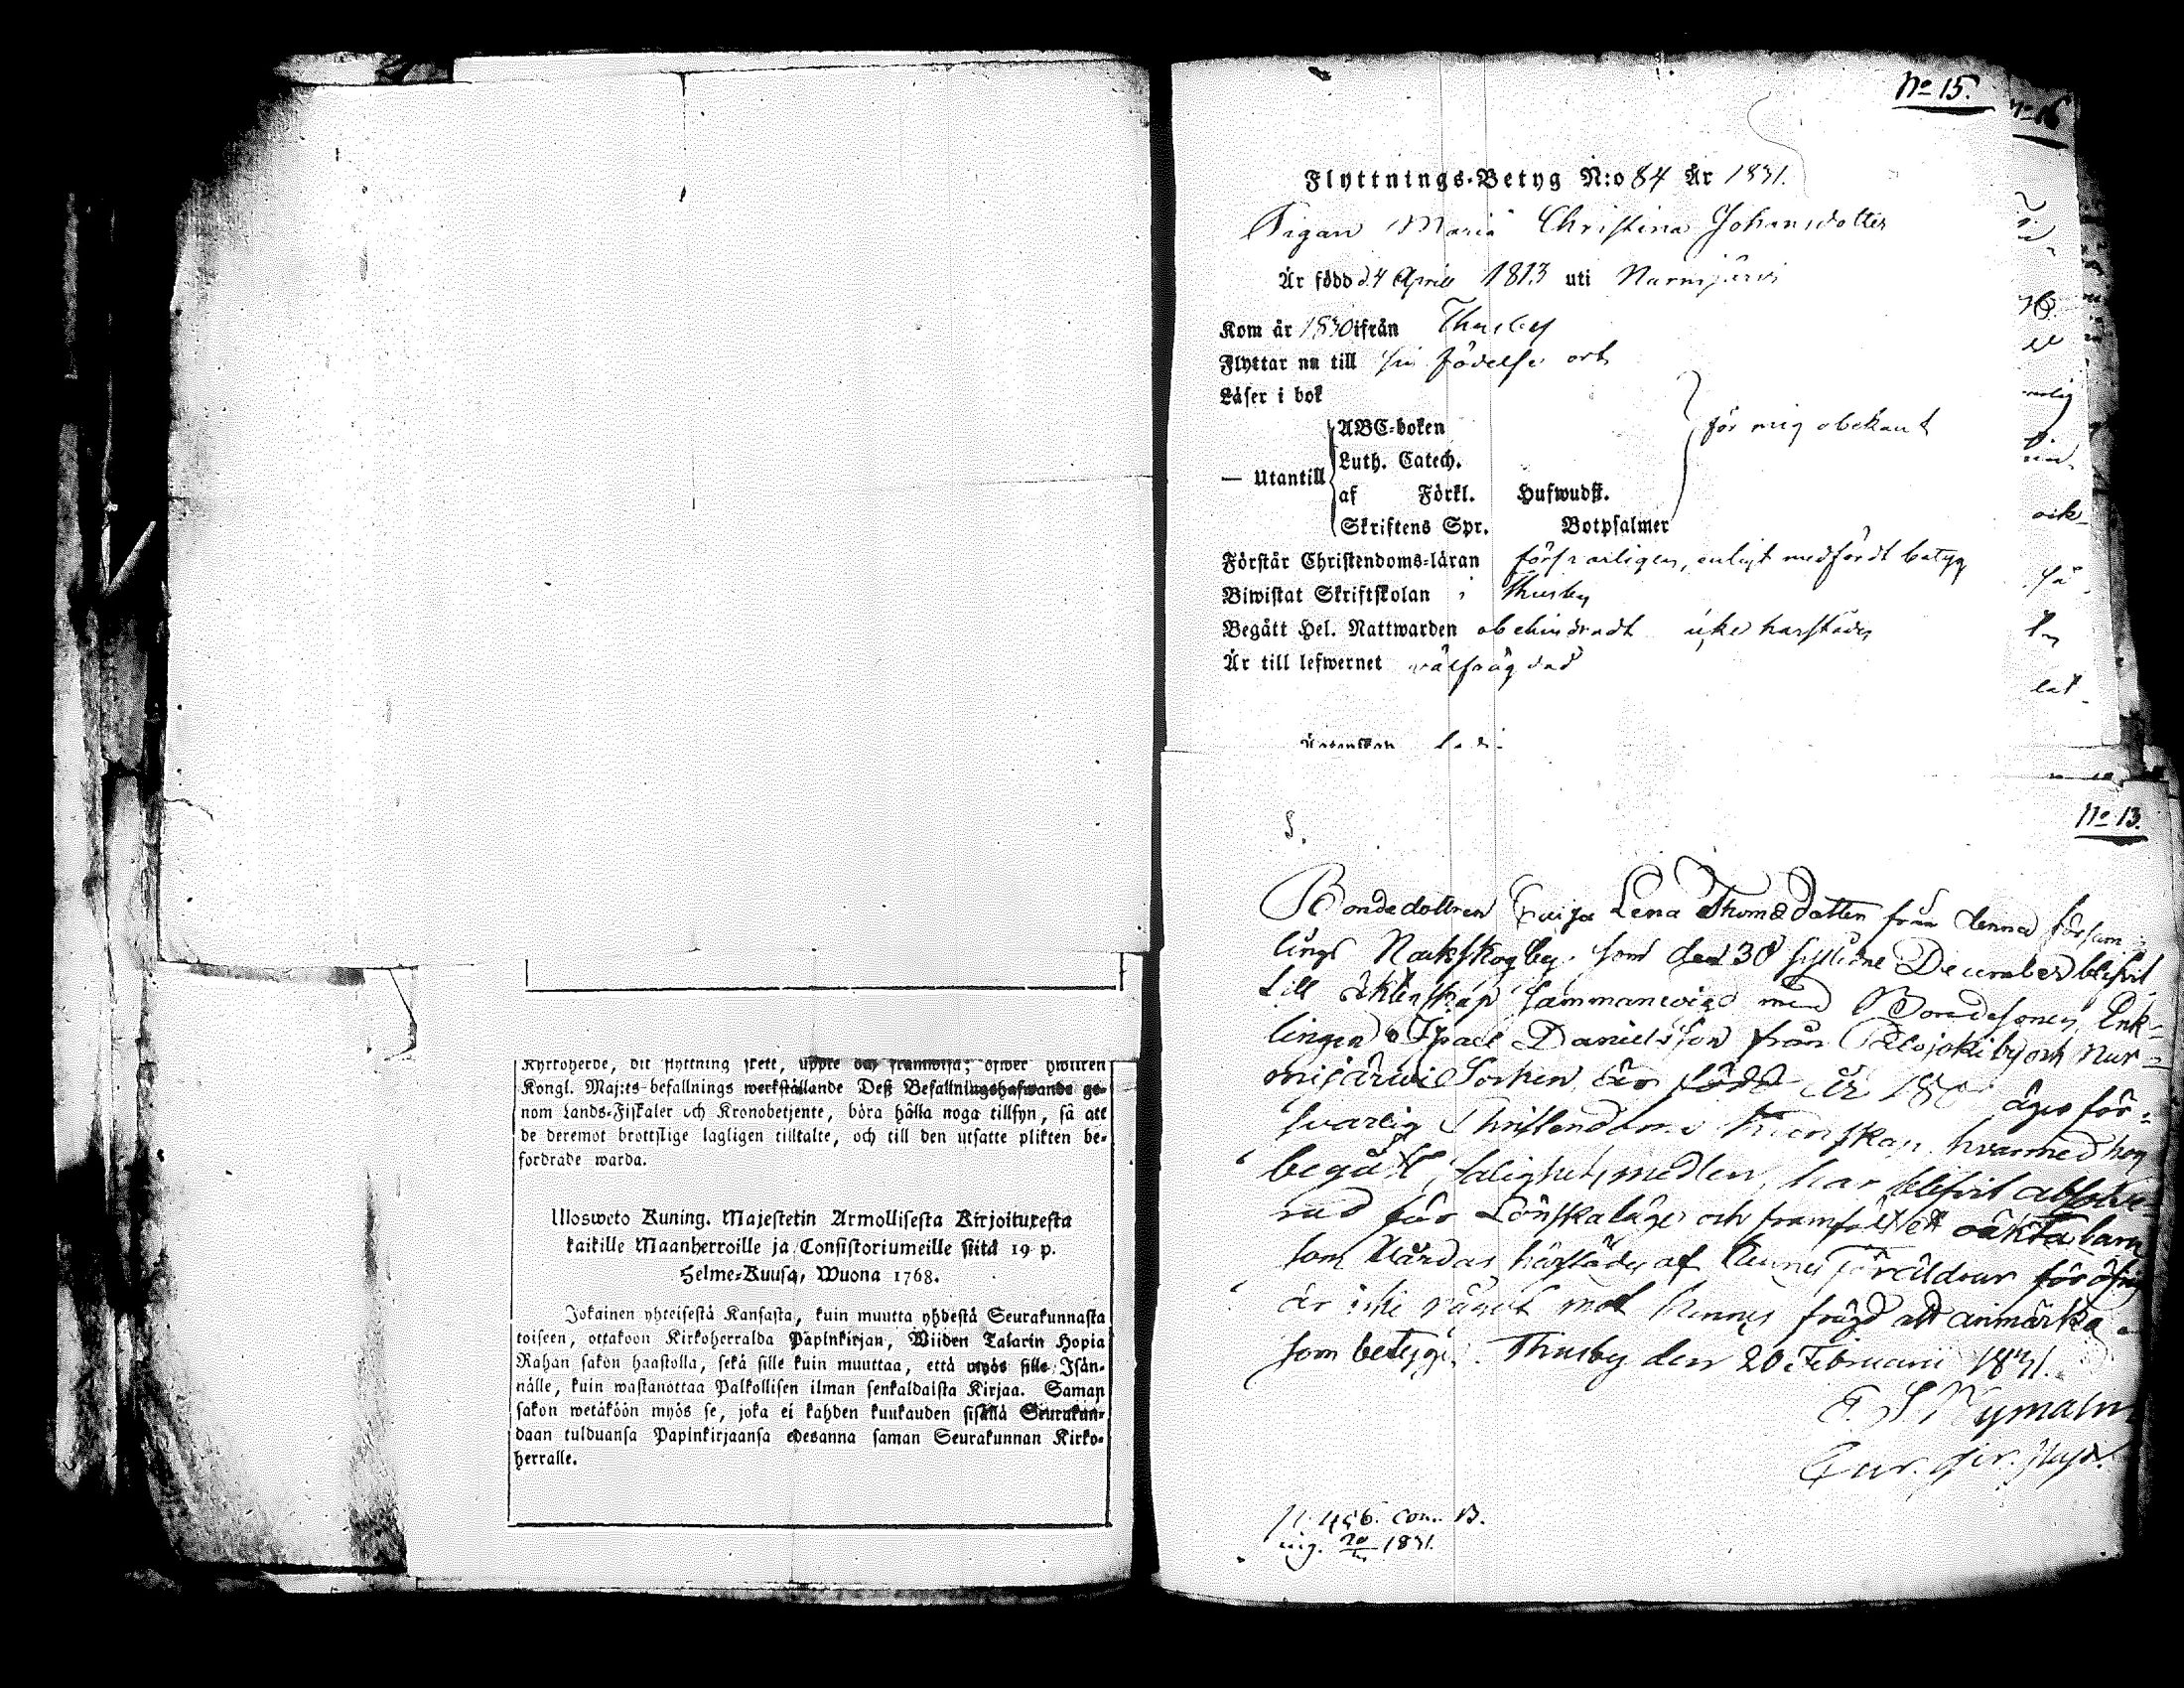 Kyrkoherde, dit flyttning skett, uppte och framwisa; öfwer hwilken
Kongl. Maj:ts befallnings werkställande Deß Befallningshafwande ge-
nom Lands-Fiskaler och Kronobetjente, böra hålla noga tillsyn, så att
de deremot brottslige lagligen tilltalte, och till den utsatte plikten be-
fordrade warda.
Ulosweto Kuning. Majestetin Armollisesta Kirjoituxesta
kaikille Maanherroille ja Consistoriumeille siitä 19 p.
Helme-Kuusa, Wuona 1768.
Jokainen yhteisestä Kansasta, kuin muutta yhdestä Seurakunnasta
toiseen, ottakoon Kirkoherralda Papinkirjan, Wiiden Talarin Hopia
Rahan sakon haastolla, sekä sille kuin muuttaa, että myös sille Isän-
nälle, kuin wastanottaa Palkollisen ilman senkaldaista Kirjaa. Saman
sakon wetäköön myös se, joka ei kahden kuukauden sisällä Seurakun-
daan tulduansa Papinkirjaansa edesanna saman Seurakunnan Kirko-
herralle.
No 15.
No 16
Flyttnings-Betyg N:o 84 År 1831.
Pigan Maria Christina Johansdotter
Är född d. 4 April 1813 uti Nurmijärvi
Kom år 1830 ifrån Thusby
Flyttar nu till sin födelse ort
Läser i bok
ABC-boken
för mig obekant
Luth. Catech.
— Utantill
af Förkl. Hufwudst.
Skriftens Spr. Botpsalmer
Förstår Christendoms-läran försvarligen, enligt medfördt betyg
Biwistat Skriftskolan i Thusby
Begått Hel. Nattwarden obehindradt äfven härstädes
Är till lefwernet välfrägdad
Äktenskap ledig
No 13.
S.
Bondedottren Lena Thomsdotter från denna försam-
lings Nackskog by, som den 30 sistledne December blifvit
till äktenskap sammanvigd med Bondesonen, Enk-
lingen Israel Danielsson från Palojoki by och Nur-
mijärvi Socken, är född år äger för-
svarlig Christendoms kunskap, hvarmed hon
begått salighetsmedlen, har blifvit absolve-
rad för Lönskaläge och framfödt ett oäkta barn
som vårdas härstädes af hennes föräldrar för öfrigt
är icke något mot hennes frägd att anmärka
som betygar. Thusby den 20 Februarii 1831.
E. S. Nymalm
p. 456. Com. B.
ing. 20 1831.